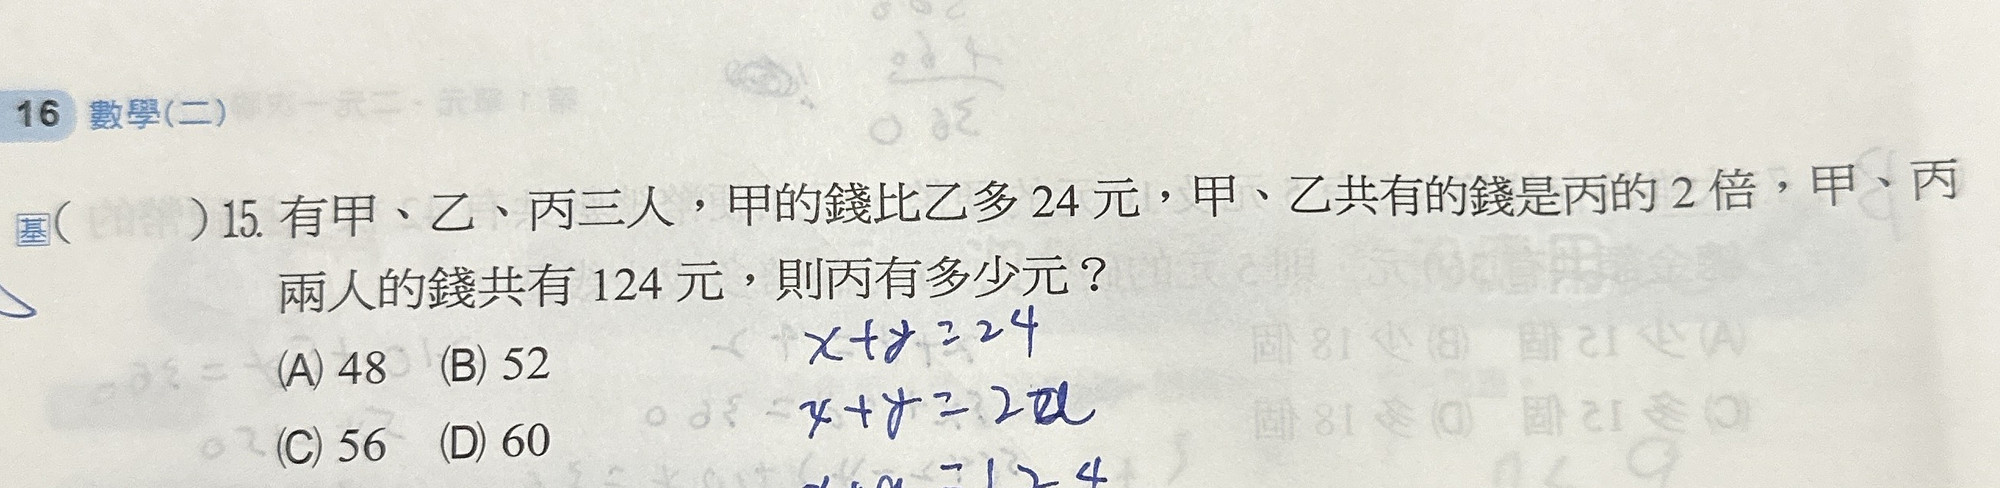 16 數學(二)
基( )15. 有甲、乙、丙三人，甲的錢比乙多 24 元，甲、乙共有的錢是丙的 2 倍，甲、丙
兩人的錢共有 124 元，則丙有多少元？
(A) 48 (B) 52
(C) 56 (D) 60
x+y=24
x+y=2a
=124